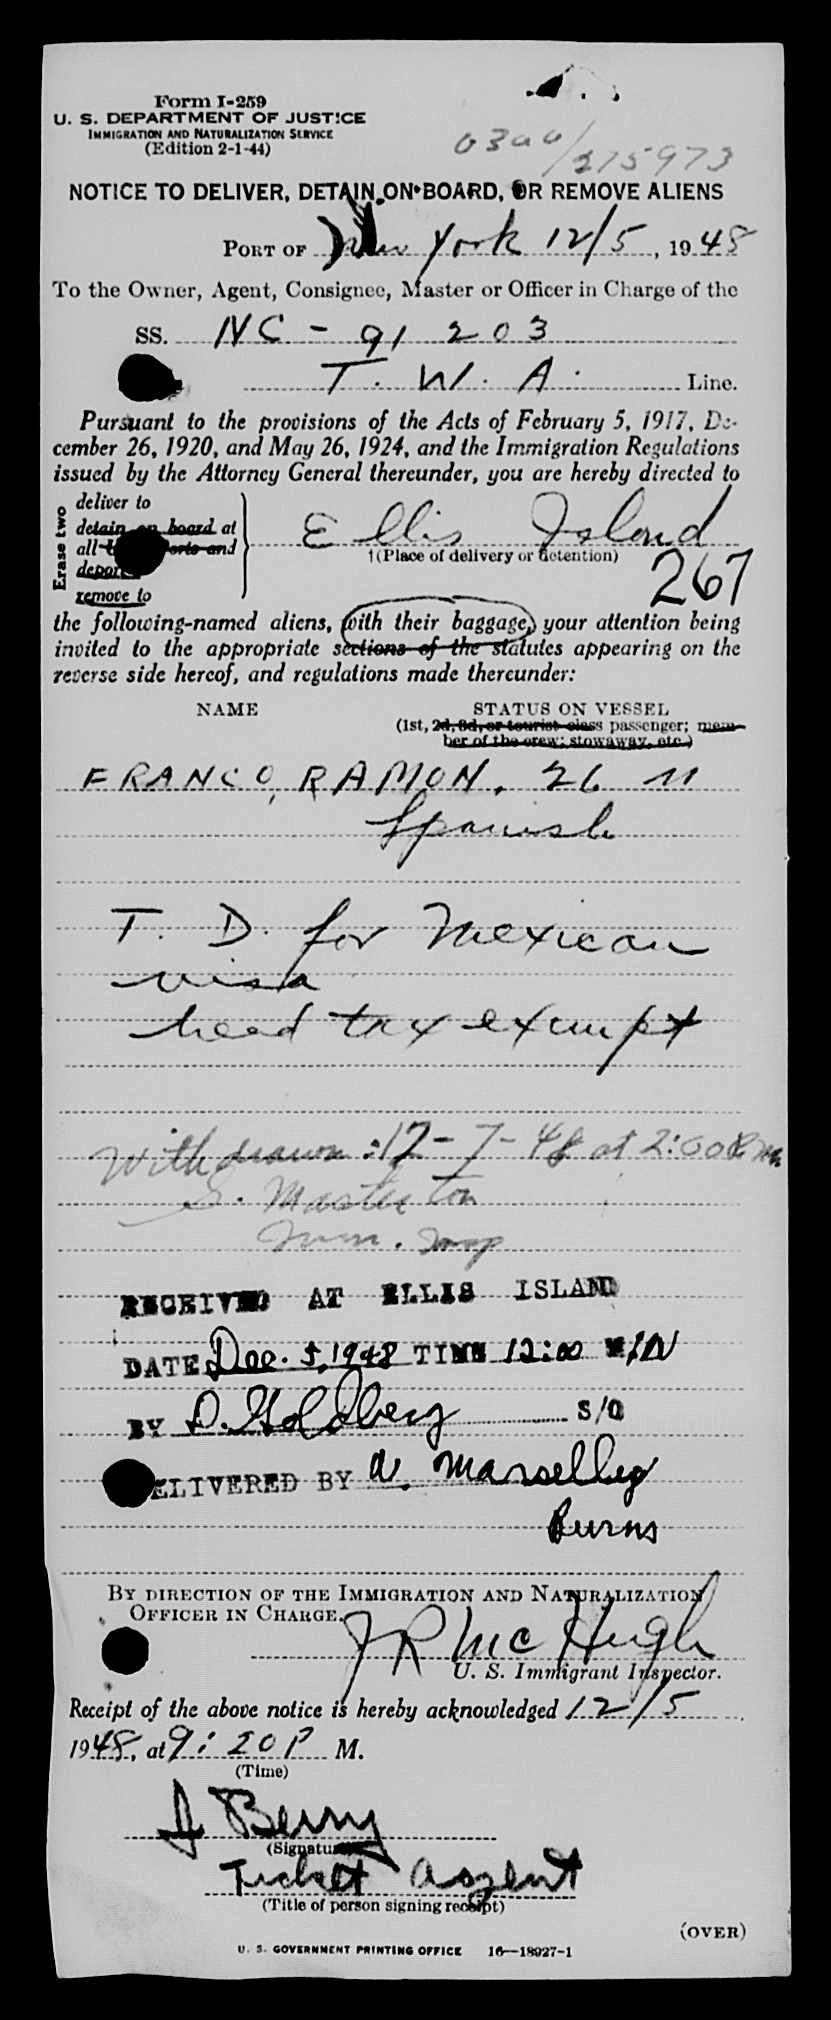 Form I-259
U. S. DEPARTMENT OF JUSTICE
IMMIGRATION AND NATURALIZATION SERVICE
(Edition 2-1-44)
0300/375973
NOTICE TO DELIVER, DETAIN ON BOARD, OR REMOVE ALIENS
PORT OF New York 12/5, 1948
To the Owner, Agent, Consignee, Master or Officer in Charge of the
SS. NC - 91 203
T. W. A. Line.
Pursuant to the provisions of the Acts of February 5, 1917, De-
cember 26, 1920, and May 26, 1924, and the Immigration Regulations
issued by the Attorney General thereunder, you are hereby directed to
Erase two
deliver to
detain on board at
all ports and
deport
remove to
Ellis Island
†(Place of delivery or detention)
267
the following-named aliens, with their baggage, your attention being
invited to the appropriate sections of the statutes appearing on the
reverse side hereof, and regulations made thereunder:
NAME STATUS ON VESSEL
(1st, 2d, 3d, or tourist class passenger; mem-
ber of the crew; stowaway, etc.)
FRANCO, RAMON. 26 M
Spanish
T. D. for Mexican
visa
head tax exempt
Withdrawn: 12-7-48 at 2:00 Pm
S. Masterton
Imm. Insp
RECEIVED AT ELLIS ISLAND
DATE Dec. 5, 1948 TIME 12:00 M/N
BY D. Goldberg S/O
DELIVERED BY A.
Burns
BY DIRECTION OF THE IMMIGRATION AND NATURALIZATION
OFFICER IN CHARGE.
JR McHugh
U. S. Immigrant Inspector.
Receipt of the above notice is hereby acknowledged 12/5
1948, at 9:20 P M.
(Time)
J Berry
(Signature)
Ticket Agent
(Title of person signing receipt)
(OVER)
U. S. GOVERNMENT PRINTING OFFICE 16—18927-1